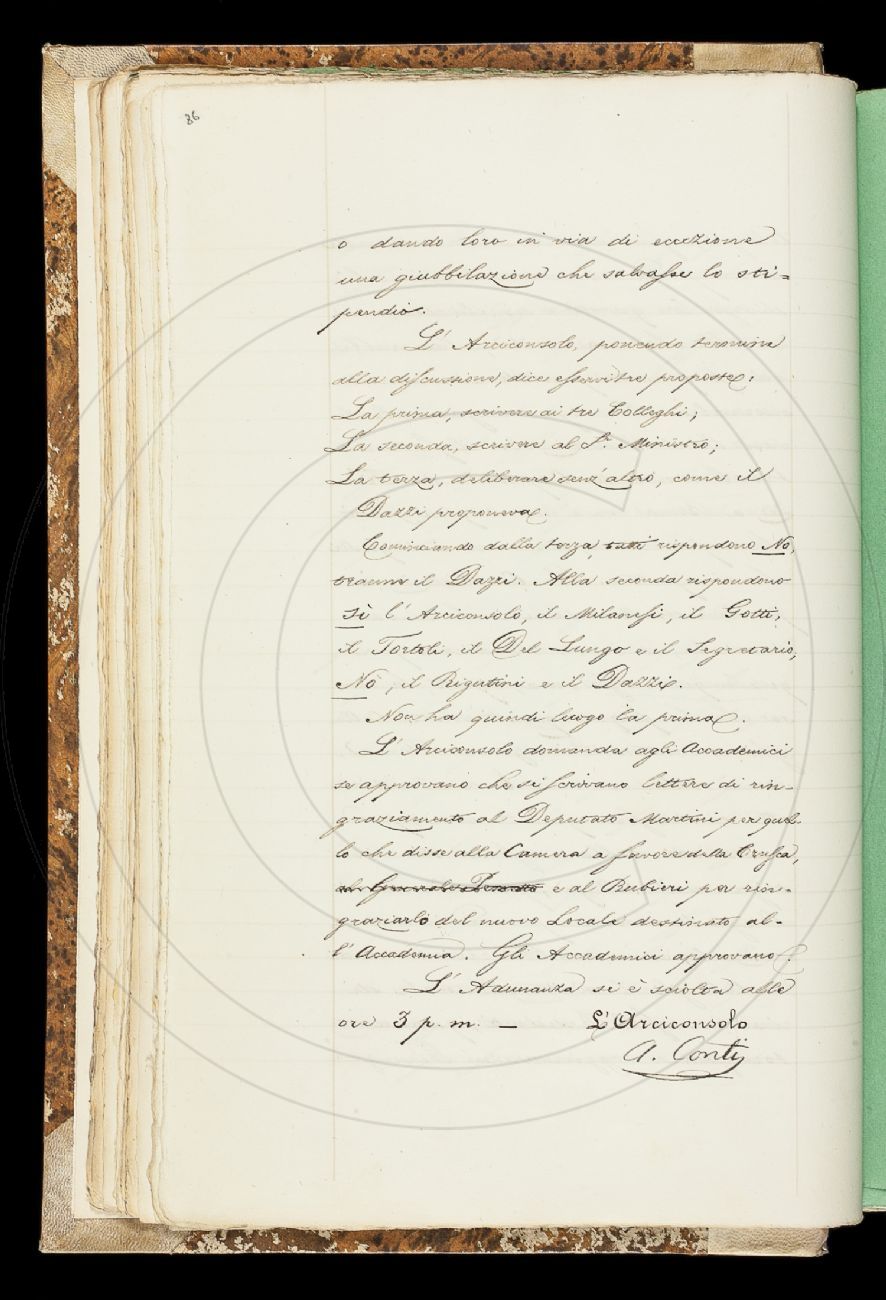 86
o dando loro in via di eccezione
una giubbilazione che salvasse lo sti=
pendio.
L'Arciconsolo, ponendo termine
alla discussione, dice esservi tre proposte:
La prima, scrivere ai tre Colleghi;
La seconda, scrivere al Sr. Ministro;
La terza, deliberare senz'altro, come il
Dazzi proponeva.
Cominciando dalla terza, tutti rispondono No,
tranne il Dazzi. Alla seconda rispondono
Sì l'Arciconsolo, il Milanesi, il Gotti,
il Tortoli, il Del Lungo e il Segretario,
Nò, il Rigutini e il Dazzi.
Non ha quindi luogo la prima.
L'Arciconsolo domanda agli Accademici
se approvano che si scrivano lettere di rin-
graziamento al Deputato Martini per quel-
lo che disse alla Camera a favore della Crusca,
e al Rubieri per rin-
graziarlo del nuovo Locale destinato al-
l'Accademia. Gli Accademici approvano.
L'Adunanza si è sciolta alle
ore 3 p. m. —
L'Arciconsolo
A. Conti